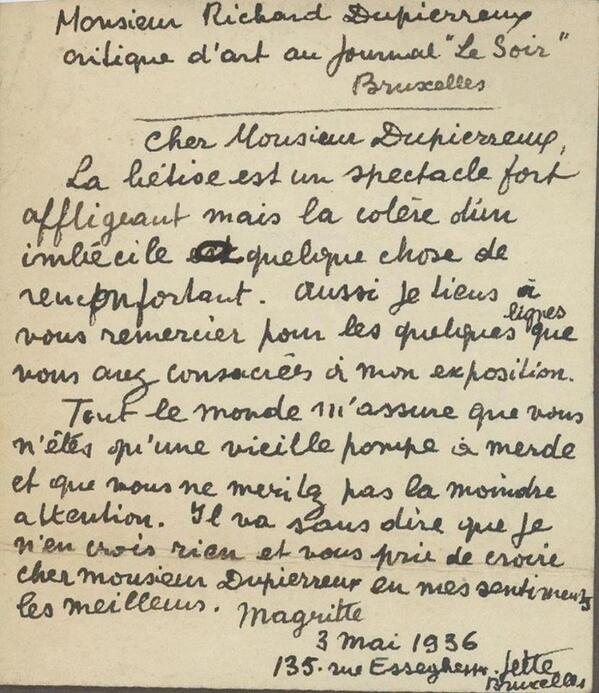 Monsieur Richard Dupierreux
critique d'art au Journal "Le Soir"
Bruxelles
Cher Monsieur Dupierreux,
La bêtise est un spectacle fort
affligeant mais la colère d'un
imbécile est quelque chose de
renconfortant. Aussi je tiens à
vous remercier pour les quelques lignes que
vous avez consacrées à mon exposition.
Tout le monde m'assure que vous
n'êtes qu'une vieille pompe à merde
et que vous ne meritez pas la moindre
attention. Il va sans dire que je
n'en crois rien et vous prie de croire
cher monsieur Dupierreux en mes sentiments
les meilleurs. Magritte
3 Mai 1936
135. rue Esseghem. Jette
Bruxelles